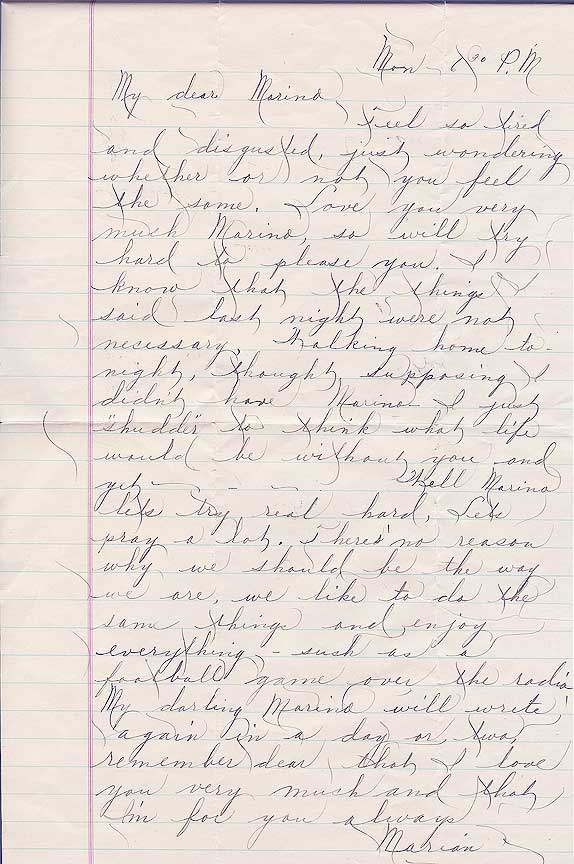 Mon 7 30 P.M
My dear Marino
Feel so tired
and disgusted, just wondering
whether or not you feel
the same. Love you very
much Marino, so will try
hard to please you. I
know that the things I
said last night were not
necessary. Walking home to-
night, thought supposing I
didn't have Marino - I just
"shudder" to think what life
would be without you and
yet - - - - Well Marino
let's try real hard, Let's
pray a lot. There's no reason
why we should be the way
we are, we like to do the
same things and enjoy
everything - such as a
football game over the radio
My darling Marino will write
again in a day or two,
remember dear, that I love
you very much and that
I'm for you always
Marian